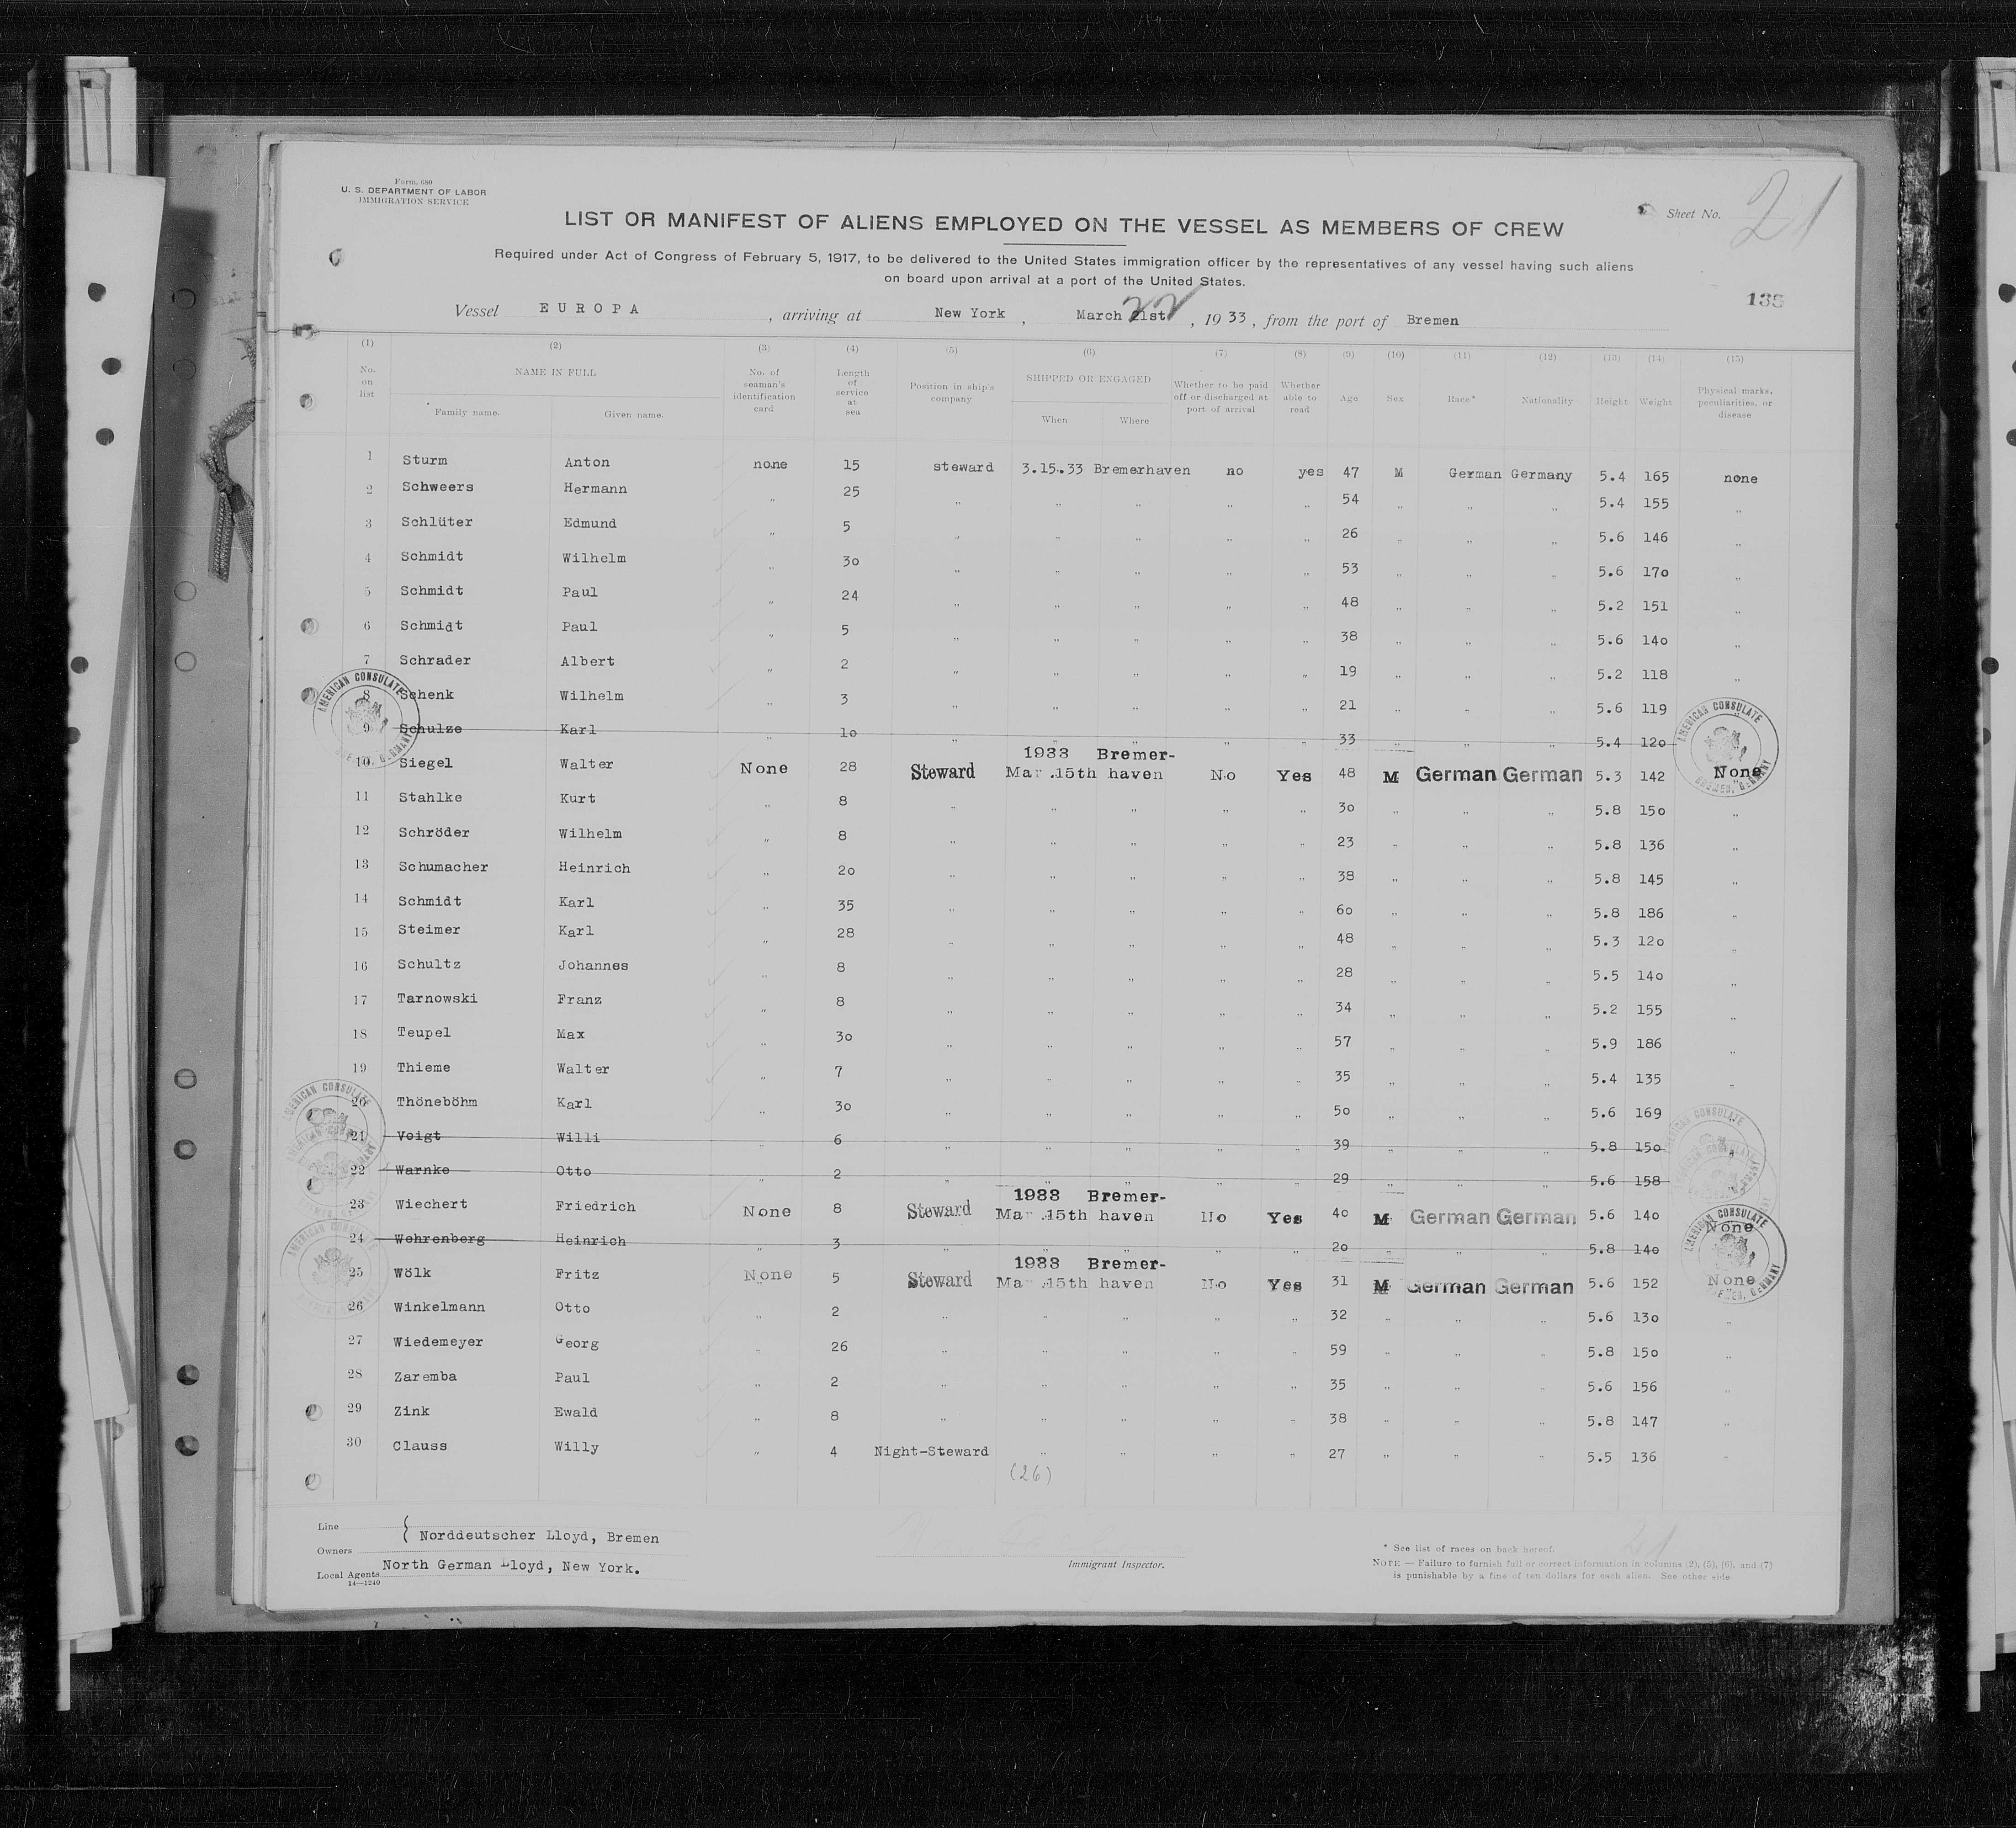 Form 680
U. S. DEPARTMENT OF LABOR
IMMIGRATION SERVICE
Sheet No. 21
LIST OR MANIFEST OF ALIENS EMPLOYED ON THE VESSEL AS MEMBERS OF CREW
Required under Act of Congress of February 5, 1917, to be delivered to the United States immigration officer by the representatives of any vessel having such aliens
on board upon arrival at a port of the United States.
Vessel EUROPA, arriving at New York, March 21st 22, 1933, from the port of Bremen
(1) (2) (3) (4) (5) (6) (7) (8) (9) (10) (11) (12) (13) (14) (15)
No. on list NAME IN FULL Family name. Given name. No. of seaman's identification card Length of service at sea Position in ship's company SHIPPED OR ENGAGED When Where Whether to be paid off or discharged at port of arrival Whether able to read Age Sex Race* Nationality Height Weight Physical marks, peculiarities, or disease
1 Sturm Anton none 15 steward 3.15.33 Bremerhaven no yes 47 M German Germany 5.4 165 none
2 Schweers Hermann " 25 " " " " " 54 " " " 5.4 155 "
3 Schlüter Edmund " 5 " " " " " 26 " " " 5.6 146 "
4 Schmidt Wilhelm " 30 " " " " " 53 " " " 5.6 170 "
5 Schmidt Paul " 24 " " " " " 48 " " " 5.2 151 "
6 Schmidt Paul " 5 " " " " " 38 " " " 5.6 140 "
7 Schrader Albert " 2 " " " " " 19 " " " 5.2 118 "
8 Schenk Wilhelm " 3 " " " " " 21 " " " 5.6 119 "
9 Schulze Karl " 10 " " " " " 33 " " " 5.4 120
10 Siegel Walter None 28 Steward 1933 Mar. 15th Bremer-haven No Yes 48 M German German 5.3 142 None
11 Stahlke Kurt " 8 " " " " " 30 " " " 5.8 150 "
12 Schröder Wilhelm " 8 " " " " " 23 " " " 5.8 136 "
13 Schumacher Heinrich " 20 " " " " " 38 " " " 5.8 145 "
14 Schmidt Karl " 35 " " " " " 60 " " " 5.8 186 "
15 Steimer Karl " 28 " " " " " 48 " " " 5.3 120 "
16 Schultz Johannes " 8 " " " " " 28 " " " 5.5 140 "
17 Tarnowski Franz " 8 " " " " " 34 " " " 5.2 155 "
18 Teupel Max " 30 " " " " " 57 " " " 5.9 186 "
19 Thieme Walter " 7 " " " " " 35 " " " 5.4 135 "
20 Thöneböhm Karl " 30 " " " " " 50 " " " 5.6 169
21 Voigt Willi " 6 " " " " " 39 " " " 5.8 150 "
22 Warnke Otto " 2 " " " " " 29 " " " 5.6 158
23 Wiechert Friedrich None 8 Steward 1933 Mar. 15th Bremer-haven No Yes 40 M German German 5.6 140 None
24 Wehrenberg Heinrich " 3 " " " " " 20 " " " 5.8 140
25 Wölk Fritz None 5 Steward 1933 Mar. 15th Bremer-haven No Yes 31 M German German 5.6 152 None
26 Winkelmann Otto " 2 " " " " " 32 " " " 5.6 130 "
27 Wiedemeyer Georg " 26 " " " " " 59 " " " 5.8 150 "
28 Zaremba Paul " 2 " " " " " 35 " " " 5.6 156 "
29 Zink Ewald " 8 " " " " " 38 " " " 5.8 147 "
30 Clauss Willy " 4 Night-Steward " " " " 27 " " " 5.5 136 "
(26)
AMERICAN CONSULATE
BREMEN, GERMANY
Line
Owners
{ Norddeutscher Lloyd, Bremen
Local Agents North German Lloyd, New York.
14—1240
Immigrant Inspector.
* See list of races on back hereof.
NOTE — Failure to furnish full or correct information in columns (2), (5), (6), and (7)
is punishable by a fine of ten dollars for each alien. See other side